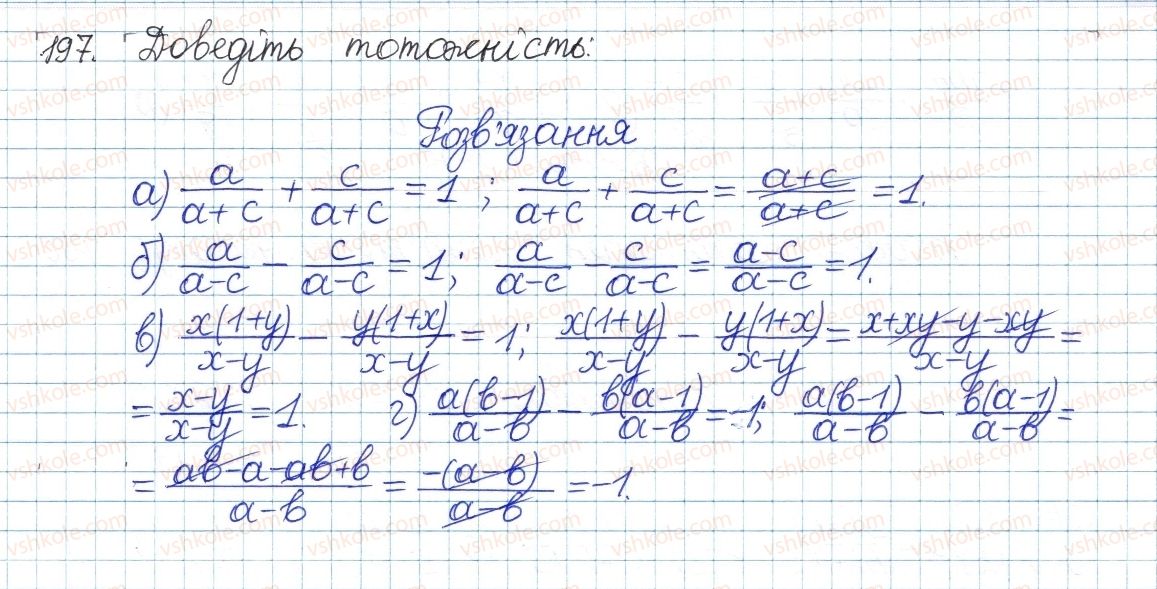 197. Доведіть тотожність:
Розв'язання
а) a/(a+c) + c/(a+c) = 1; a/(a+c) + c/(a+c) = (a+c)/(a+c) = 1.
б) a/(a-c) - c/(a-c) = 1; a/(a-c) - c/(a-c) = (a-c)/(a-c) = 1.
в) x(1+y)/(x-y) - y(1+x)/(x-y) = 1; x(1+y)/(x-y) - y(1+x)/(x-y) = (x+xy-y-xy)/(x-y) =
= (x-y)/(x-y) = 1. г) a(b-1)/(a-b) - b(a-1)/(a-b) = -1; a(b-1)/(a-b) - b(a-1)/(a-b) =
= (ab-a-ab+b)/(a-b) = -(a-b)/(a-b) = -1.
vshkole.com